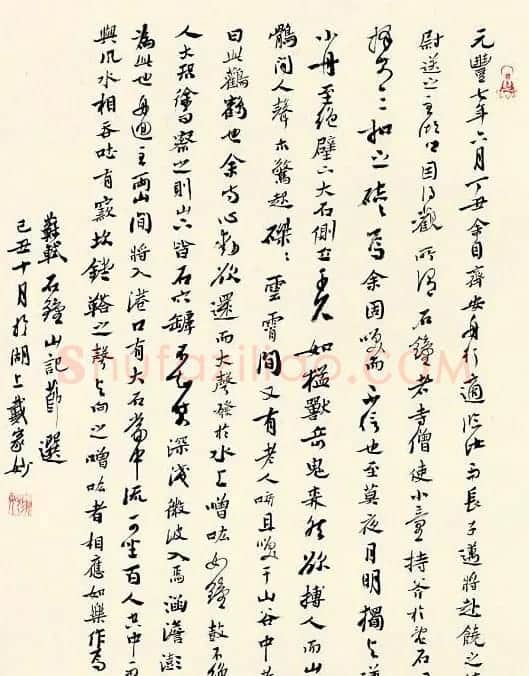 元豐七年六月丁丑余自齊安舟行適臨汝而長子邁將赴饒之
尉送之至湖口因得觀所謂石鐘者寺僧使小童持斧於亂石
擇其一二扣之硿〻焉余固笑而不信也至莫夜月明獨與邁
小舟至絕壁下大石側立千尺如猛獸奇鬼森然欲搏人而山
鶻聞人聲亦驚起磔〻雲霄間又有老人咳且笑于山谷中
曰此鸛鶴也余方心動欲還而大聲發於水上噌吰如鐘鼓不絕
人大恐徐而察之則山下皆石穴罅不知其深淺微波入焉涵澹澎
為此也舟迴至兩山間將入港口有大石當中流可坐百人空中而
與風水相吞吐有窾坎鏜鞳之聲與向之噌吰者相應如樂作焉
蘇軾石鐘山記節選
己丑十月於湖上戴家妙
Shufaziliao.com